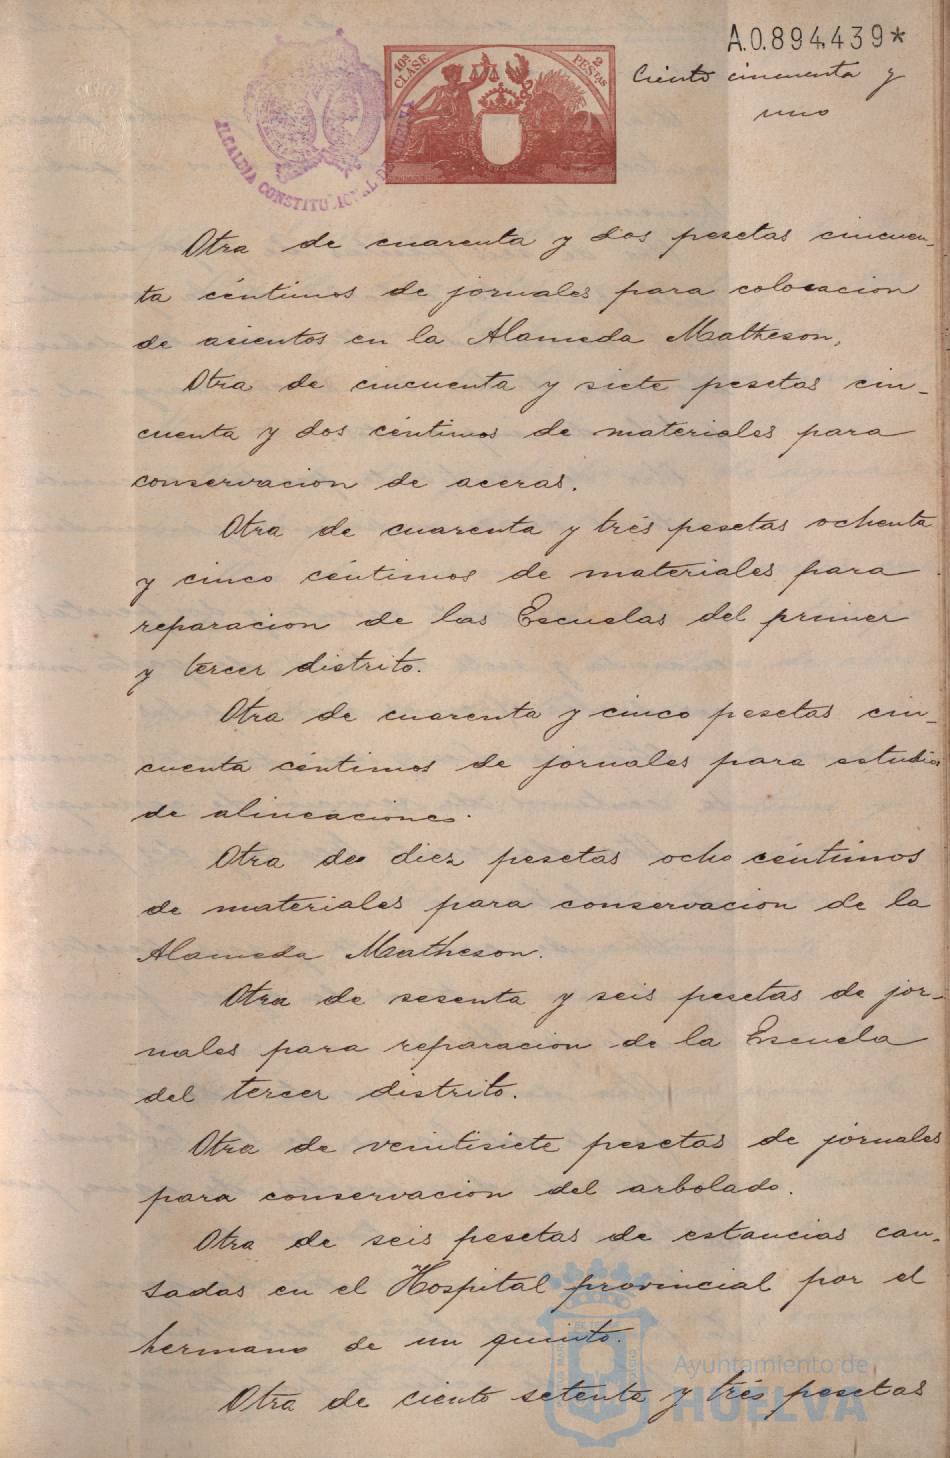 A.0.894.439*
Ciento cincuenta y
uno
10ª CLASE
2 PESTAS
ALCALDIA CONSTITUCIONAL DE HUELVA
Otra de cuarenta y dos pesetas cincuen-
ta céntimos de jornales para colocacion
de asientos en la Alameda Matheson,
Otra de cincuenta y siete pesetas cin-
cuenta y dos céntimos de materiales para
conservacion de aceras.
Otra de cuarenta y trés pesetas ochenta
y cinco céntimos de materiales para
reparacion de las Escuelas del primer
y tercer distrito.
Otra de cuarenta y cinco pesetas cin-
cuenta céntimos de jornales para estudios
de alineaciones.
Otra de diez pesetas ocho céntimos
de materiales para conservacion de la
Alameda Matheson.
Otra de sesenta y seis pesetas de jor-
nales para reparacion de la Escuela
del tercer distrito.
Otra de veintisiete pesetas de jornales
para conservacion del arbolado.
Otra de seis pesetas de estancias cau-
sadas en el Hospital provincial por el
hermano de un quinto.
Otra de ciento setenta y trés pesetas
Ayuntamiento de
HUELVA